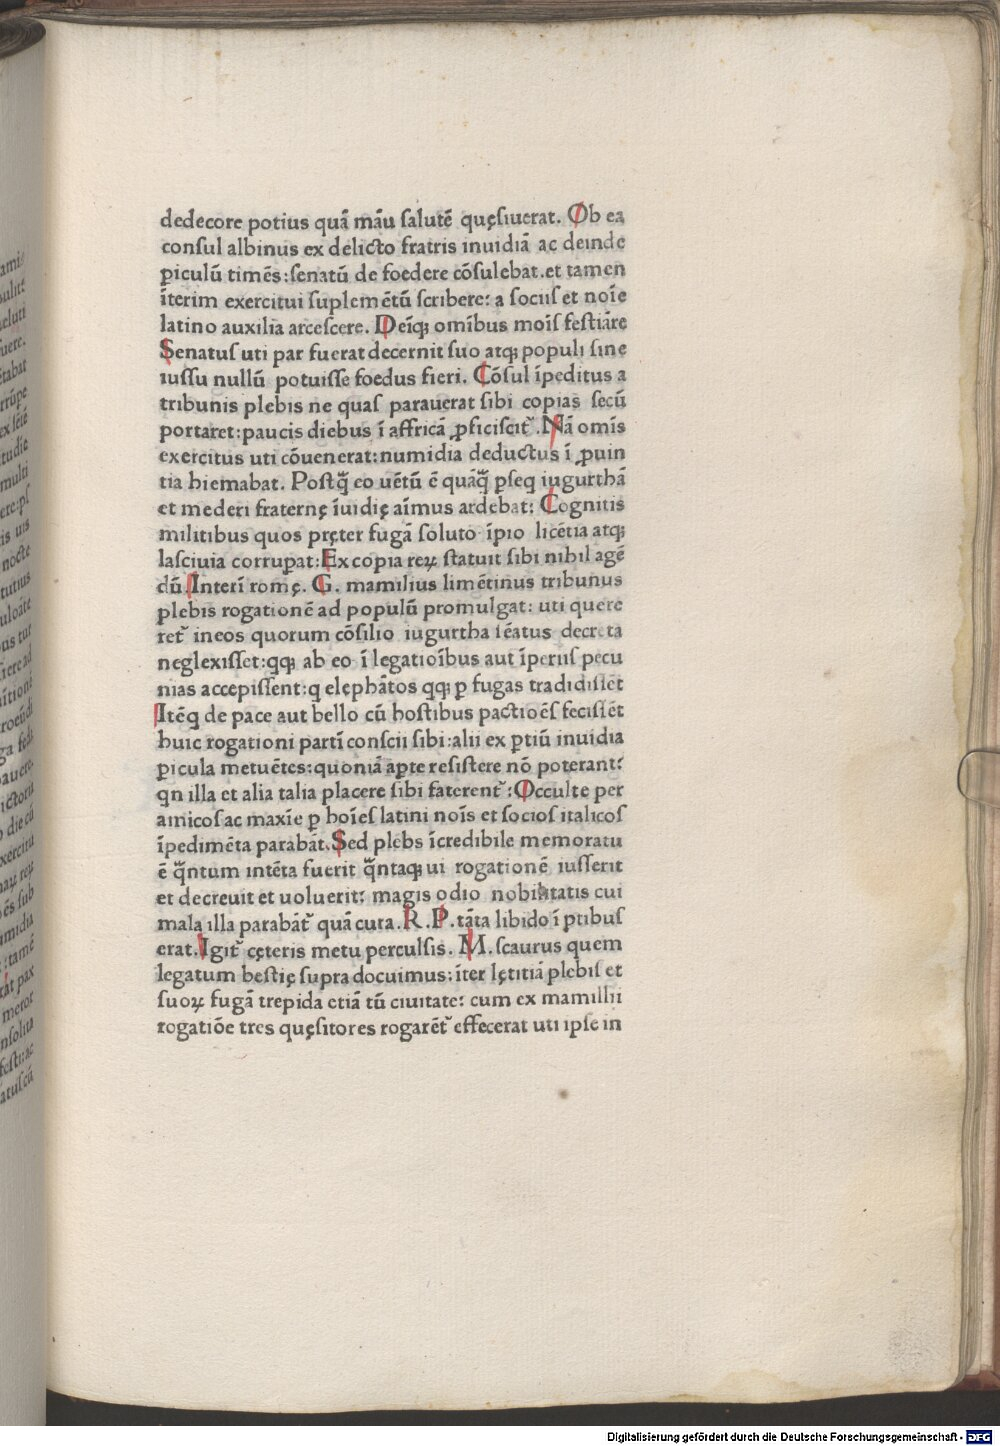 dedecore potius quā māu salutē quęsiuerat. Ob ea
consul albinus ex delicto fratris inuidiā ac deinde
ꝑiculū timēs: senatū de foedere cōsulebat. et tamen
īterim exercitui suplemētū scribere: a sociis et noīe
latino auxilia arcescere. Deīqꝫ omībus moīs festiāre
Senatus uti par fuerat decernit suo atqꝫ populi sine
iussu nullū potuisse foedus fieri. Cōsul īpeditus a
tribunis plebis ne quas parauerat sibi copias secū
portaret: paucis diebus ī affricā ꝓficiscit᷑. Nā omīs
exercitus uti cōuenerat: numidia deductus ī ꝓuin
tia hiemabat. Postq̄̈ eo uētū ē quāq̄̈ ꝑseq iugurthā
et mederi fraternę īuidię aīmus ardebat: Cognitis
militibus quos pręter fugā soluto īpio licētia atqꝫ
lasciuia corruꝑat: Ex copia reꝝ statuit sibi nihil agē
dū. Interī romę. G. mamilius limētinus tribunus
plebis rogationē ad populū promulgat: uti quere
ret᷑ ineos quorum cōsilio iugurtha ſēatus decreta
neglexisset: qqꝫ ab eo ī legatioībus aut īperiis pecu
nias accepissent: q elephātos qqꝫ ꝑ fugas tradidissēt
Itēq de pace aut bello cū hostibus pactioēs fecissēt
huic rogationi partī conscii sibi: alii ex ꝑtiū inuidia
ꝑicula metuētes: quoniā aꝑte resistere nō poterant:
qn illa et alia talia placere sibi faterent᷑: Occulte per
amicos ac maxīe ꝑ hoīes latini noīs et socios italicos
īpedimēta parabāt. Sed plebs īcredibile memoratu
ē q̄̈ntum intēta fuerit q̄̈ntaqꝫ ui rogationē iusserit
et decreuit et uoluerit: magis odio nobilitatis cui
mala illa parabāt᷑ quā cura. R. P. tāta libido ī ꝑtibus
erat. Igit᷑ cęteris metu perculsis. M. scaurus quem
legatum bestię supra docuimus: īter lętitiā plebis et
suoꝝ fugā trepida etiā tū ciuitate: cum ex mamilii
rogatiōe tres quęsitores rogarēt᷑ effecerat uti ipse in
Digitalisierung gefördert durch die Deutsche Forschungsgemeinschaft - DFG